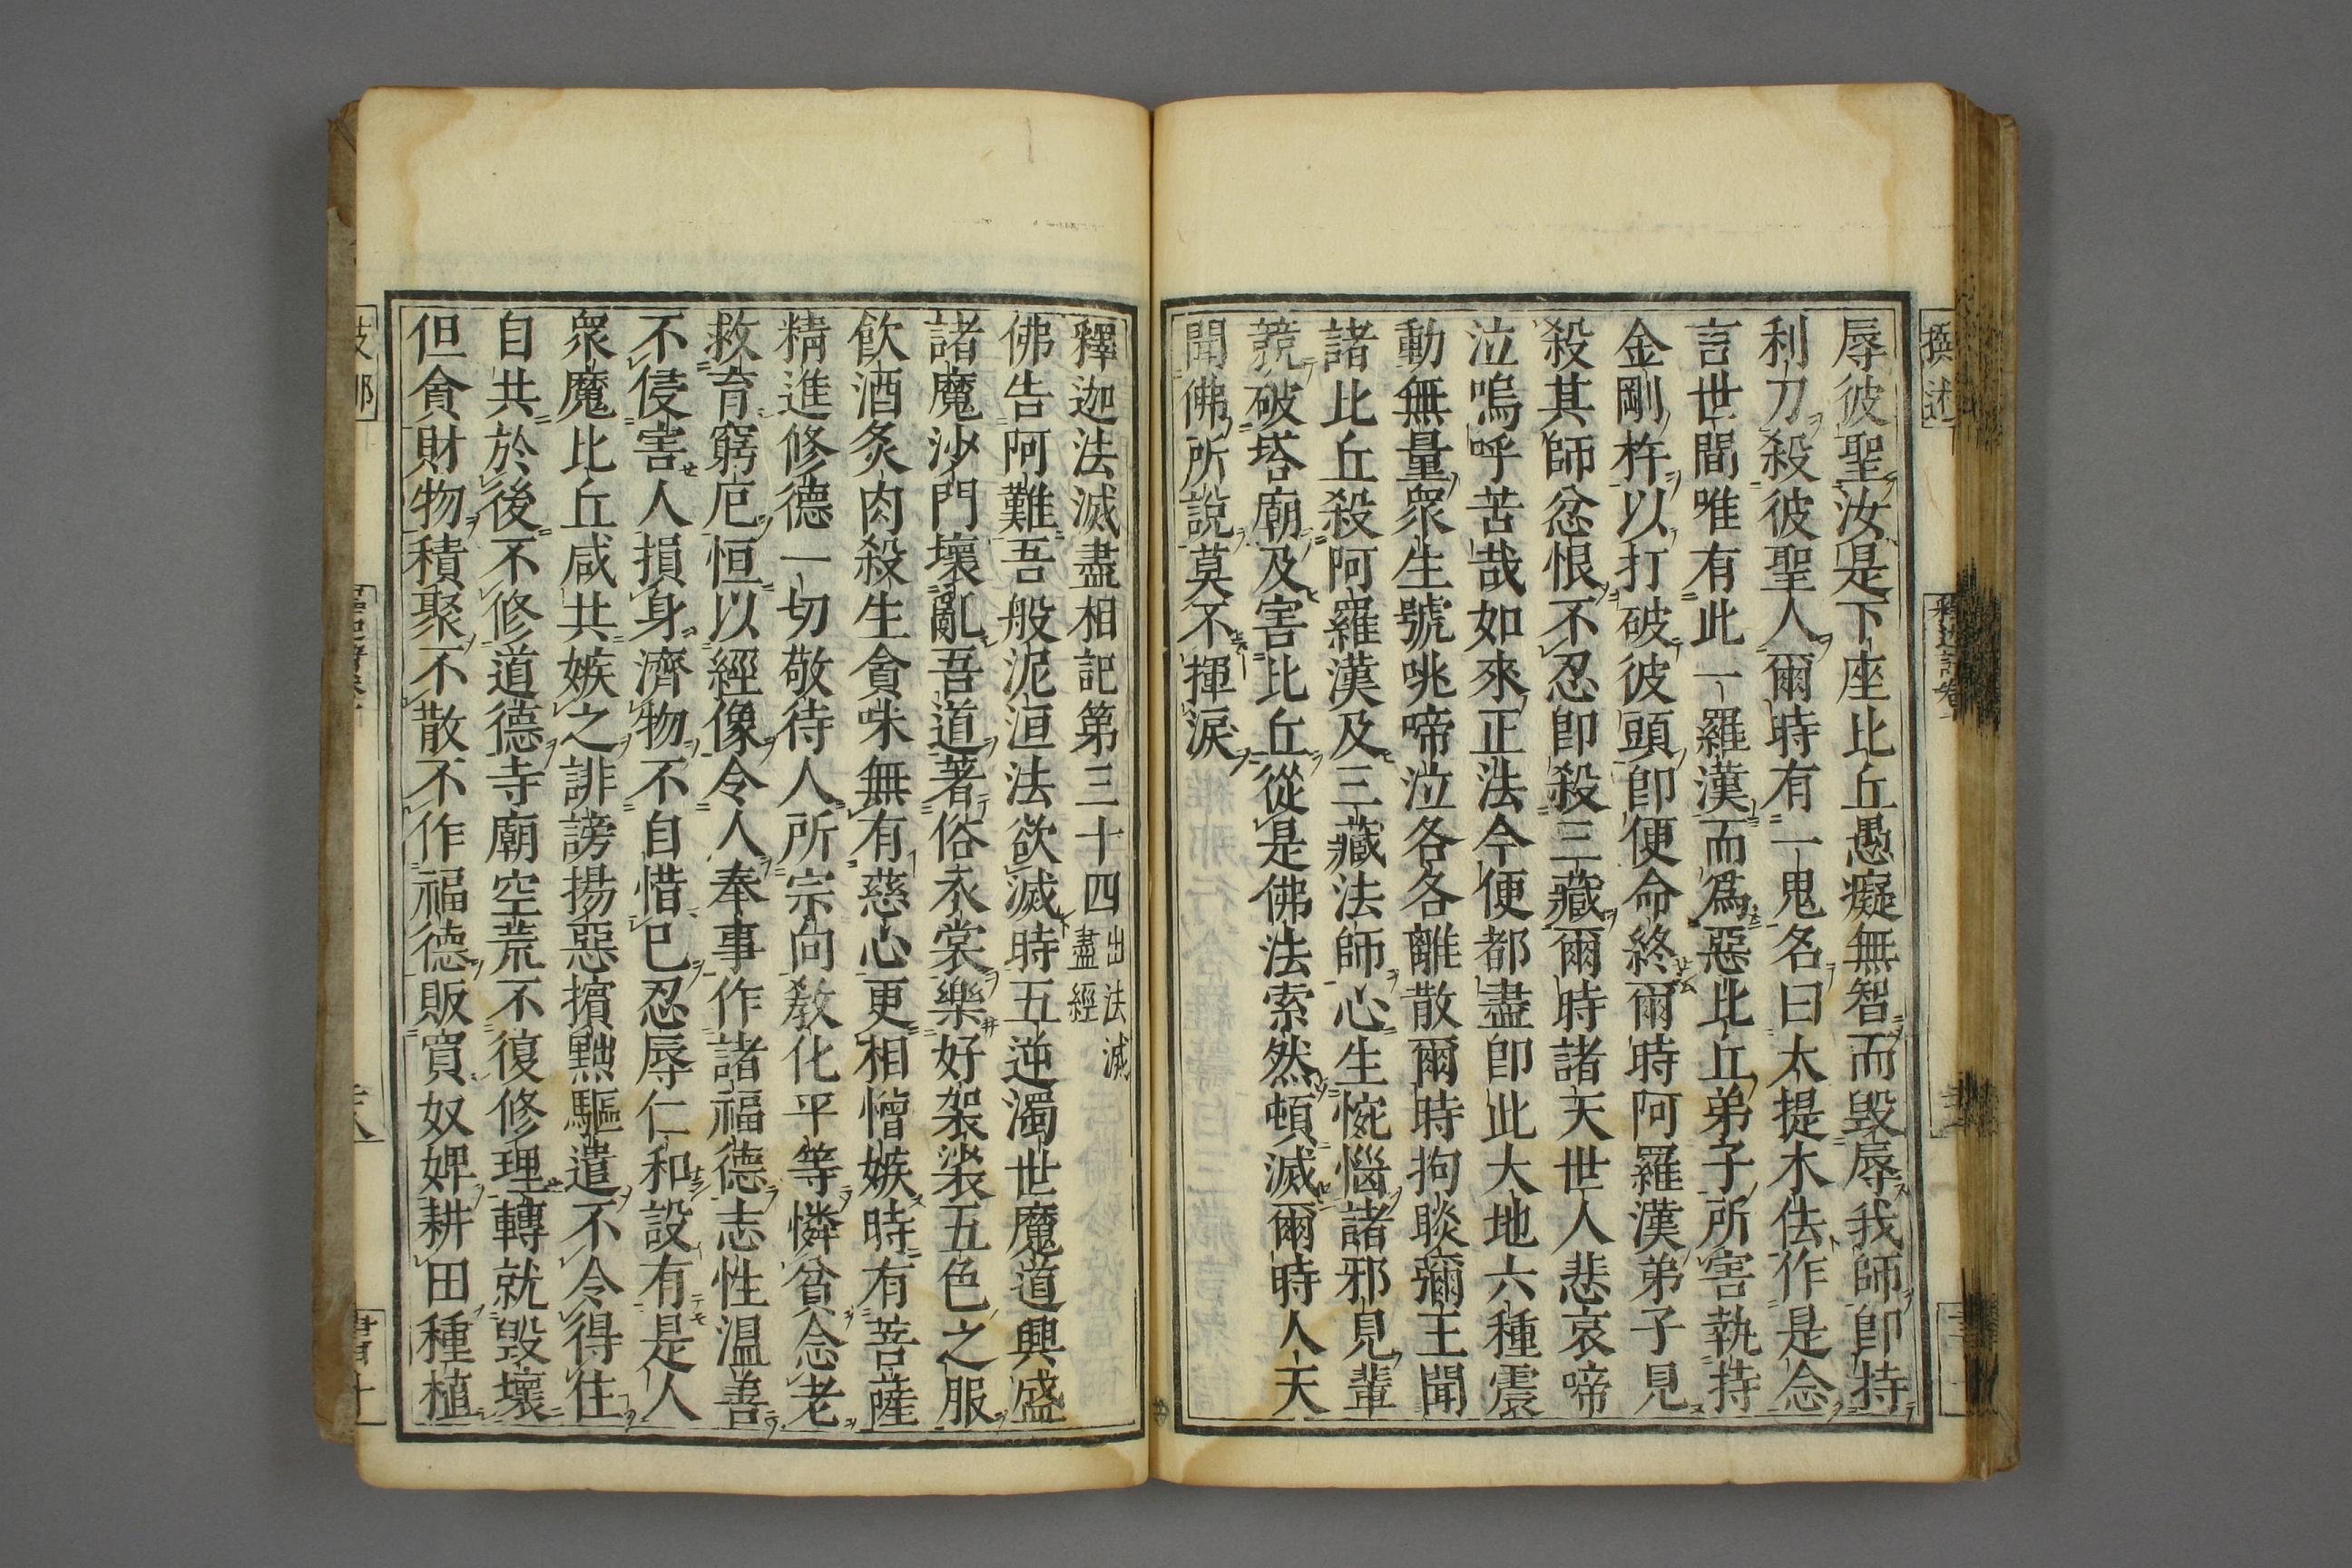 辱彼聖汝是下座比丘愚癡無智而毀辱我師卽持
利刀殺彼聖人爾時有一鬼名曰太提木佉作是念
言世間唯有此一羅漢而爲惡比丘弟子所害執持
金剛杵以打破彼頭卽便命終爾時阿羅漢弟子見
殺其師忿恨不忍卽殺三藏爾時諸天世人悲哀啼
泣嗚呼苦哉如來正法今便都盡卽此大地六種震
動無量衆生號咷啼泣各各離散爾時拘睒彌王聞
諸比丘殺阿羅漢及三藏法師心生惋惱諸邪見輩
競破塔廟及害比丘從是佛法索然頓滅爾時人天
聞佛所說莫不揮淚
釋迦法滅盡相記第三十四 出法滅盡經
佛告阿難吾般泥洹法欲滅時五逆濁世魔道興盛
諸魔沙門壞亂吾道著俗衣裳樂好袈裟五色之服
飮酒炙肉殺生貪味無有慈心更相憎嫉時有菩薩
精進修德一切敬待人所宗向敎化平等憐貧念老
救育窮厄恒以經像令人奉事作諸福德志性温善
不侵害人損身濟物不自惜已忍辱仁和設有是人
衆魔比丘咸共嫉之誹謗揚惡擯黜驅遣不令得住
自共於後不修道德寺廟空荒不復修理轉就毀壞
但貪財物積聚不散不作福德販買奴婢耕田種植